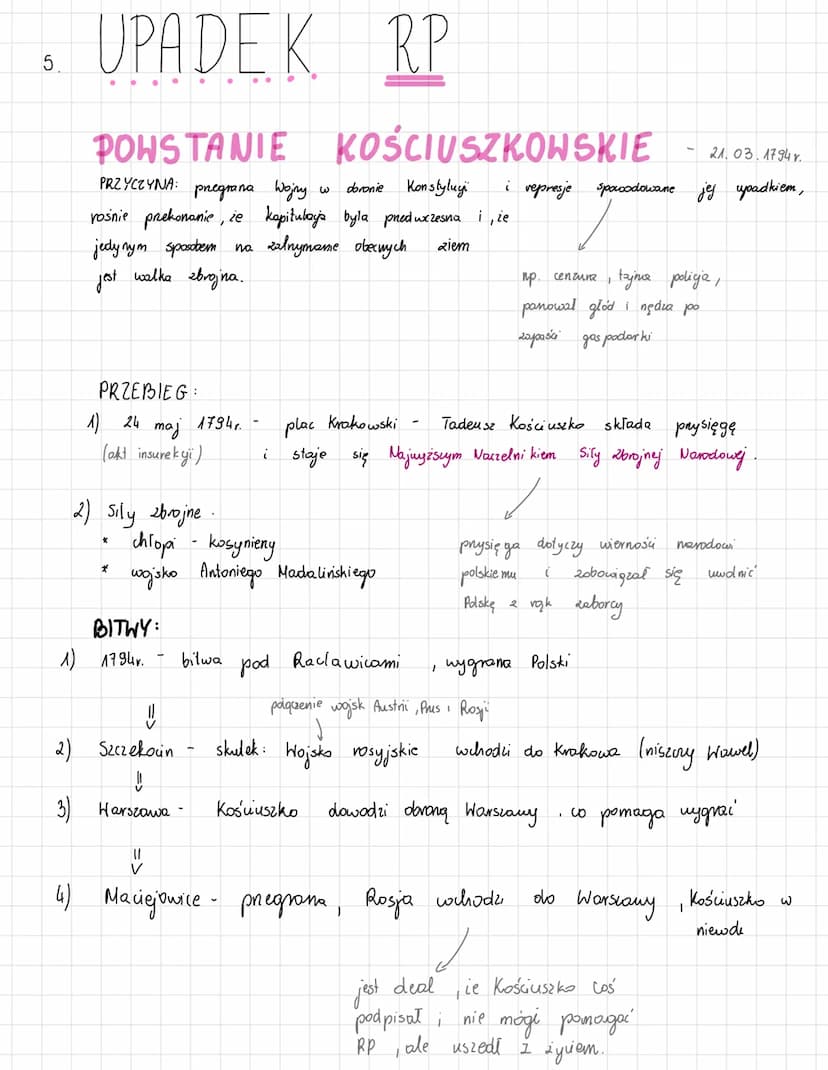 5. UPADEK RP
POWSTANIE KOŚCIUSZKOWSKIE - 21.03.1794r.
PRZYCZYNA: przegrana Wojny w obronie Konstytucji i represje spowodowane jej upadkiem,
rośnie przekonanie, że kapitulacja była przedwczesna i, że
jedynym sposobem na zatrzymanie obecnych ziem
jest walka zbrojna.
np. cenzura, tajna policja,
panował głód i nędza po
zapaści gospodarki
PRZEBIEG:
1) 24 maj 1794r. - plac Krakowski - Tadeusz Kościuszko składa przysięgę
(akt insurekcji) i staje się Najwyższym Naczelnikiem Siły Zbrojnej Narodowej.
2) Siły zbrojne.
* chłopi - kosynierzy
* wojsko Antoniego Madalińskiego
przysięga dotyczy wierności narodowi
polskiemu i zobowiązał się uwolnić
Polskę z rąk zaborcy
BITWY:
1) 1794r. - bitwa pod Racławicami, wygrana Polski
połączenie wojsk Austrii, Prus i Rosji
2) Szczekocin - skutek: Wojsko rosyjskie wchodzi do Krakowa (niszczy Wawel)
3) Warszawa - Kościuszko dowodzi obroną Warszawy. co pomaga wygrać
4) Maciejowice - przegrana, Rosja wchodzi do Warszawy, Kościuszko w
niewoli
jest deal, że Kościuszko coś
podpisał i nie mógł pomagać
RP, ale uszedł z życiem.